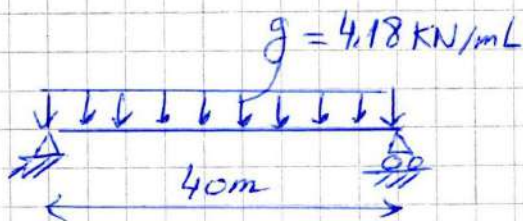 g = 4.18 KN/mL
40m